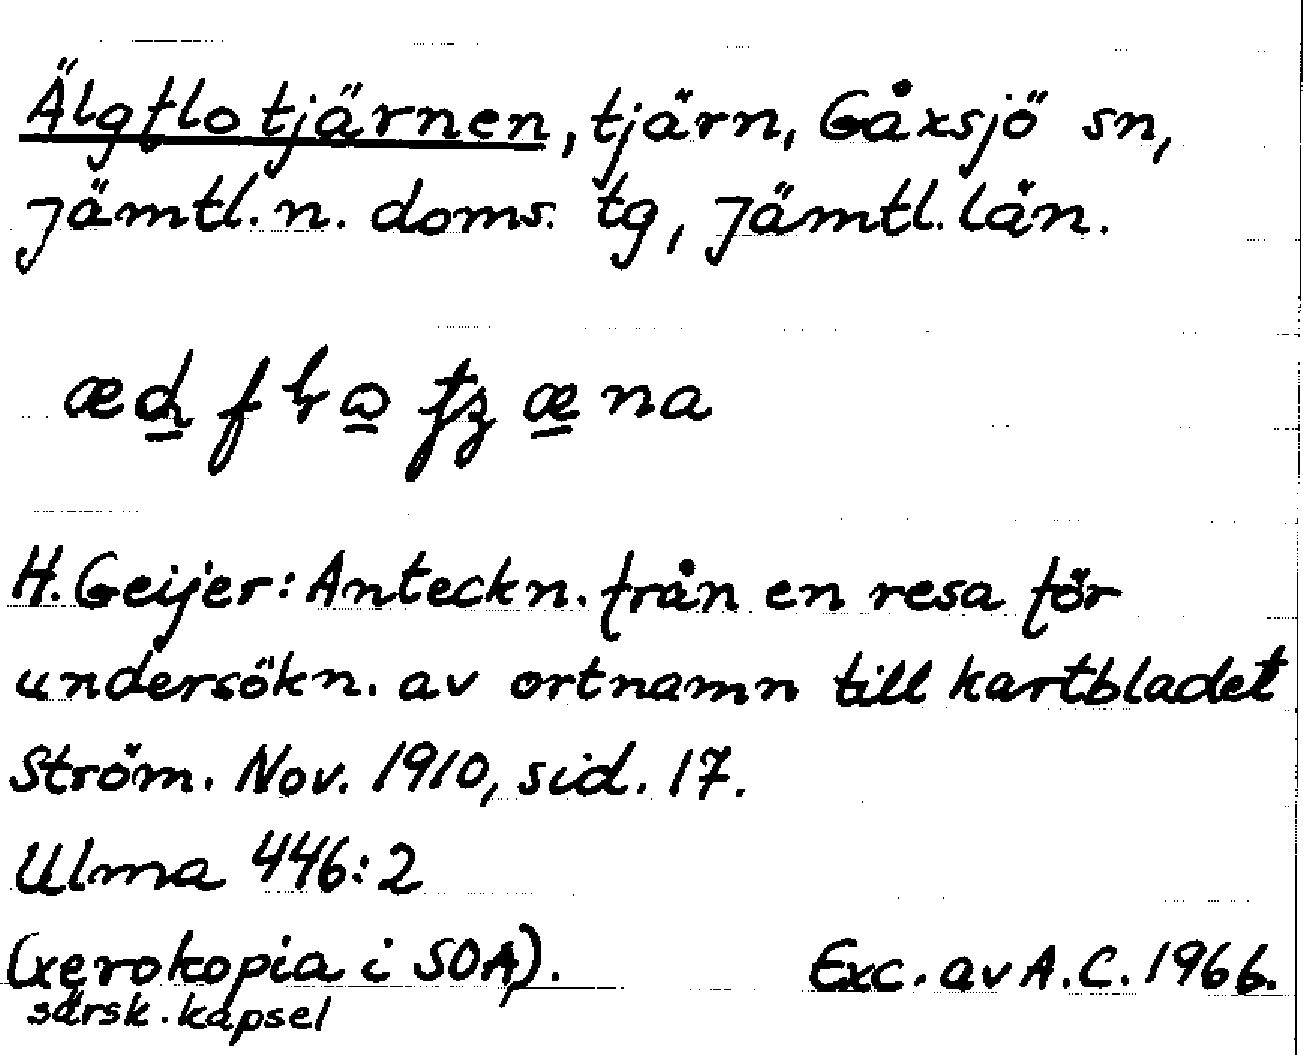 Älgflotjärnen, tjärn, Gåxsjö sn,
Jämtl. n. doms. tg, Jämtl. län.
H. Geijer: Anteckn. från en resa för
undersökn. av ortnamn till kartbladet
Ström. Nov. 1910, sid. 17.
Ulma 446:2
(xerokopia i SOA, särsk. kapsel).
Exc. av A.C. 1966.